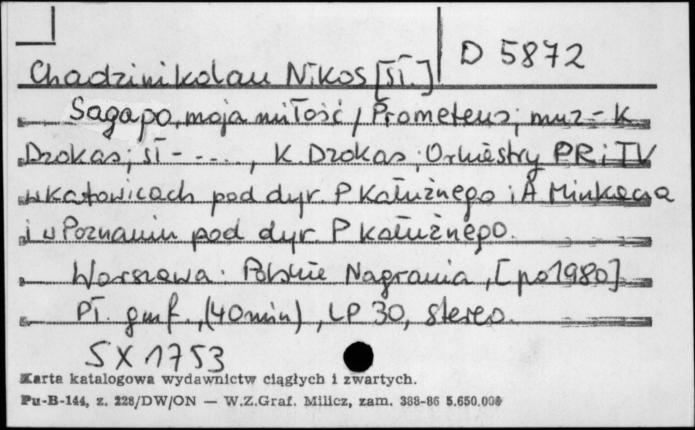 D 5872
Chadzinikolau Nikos [sł.]
Sagapo, moja miłość / Prometeus; muz - K
Dzokas; sł - - - . . , K. Dzokas; Orkiestry PR i TV
w Katowicach pod dyr. P Kałużnego i A. Minkacza
i w Poznaniu pod dyr. P Kałużnego.
Warszawa : Polskie Nagrania, [po 1980]
Pł. gmf., (40 min), LP 30, stereo.
SX 1753
Karta katalogowa wydawnictw ciągłych i zwartych.
Pu-B-144, z. 228/DW/ON — W.Z.Graf. Milicz, zam. 388-86 5.650.000